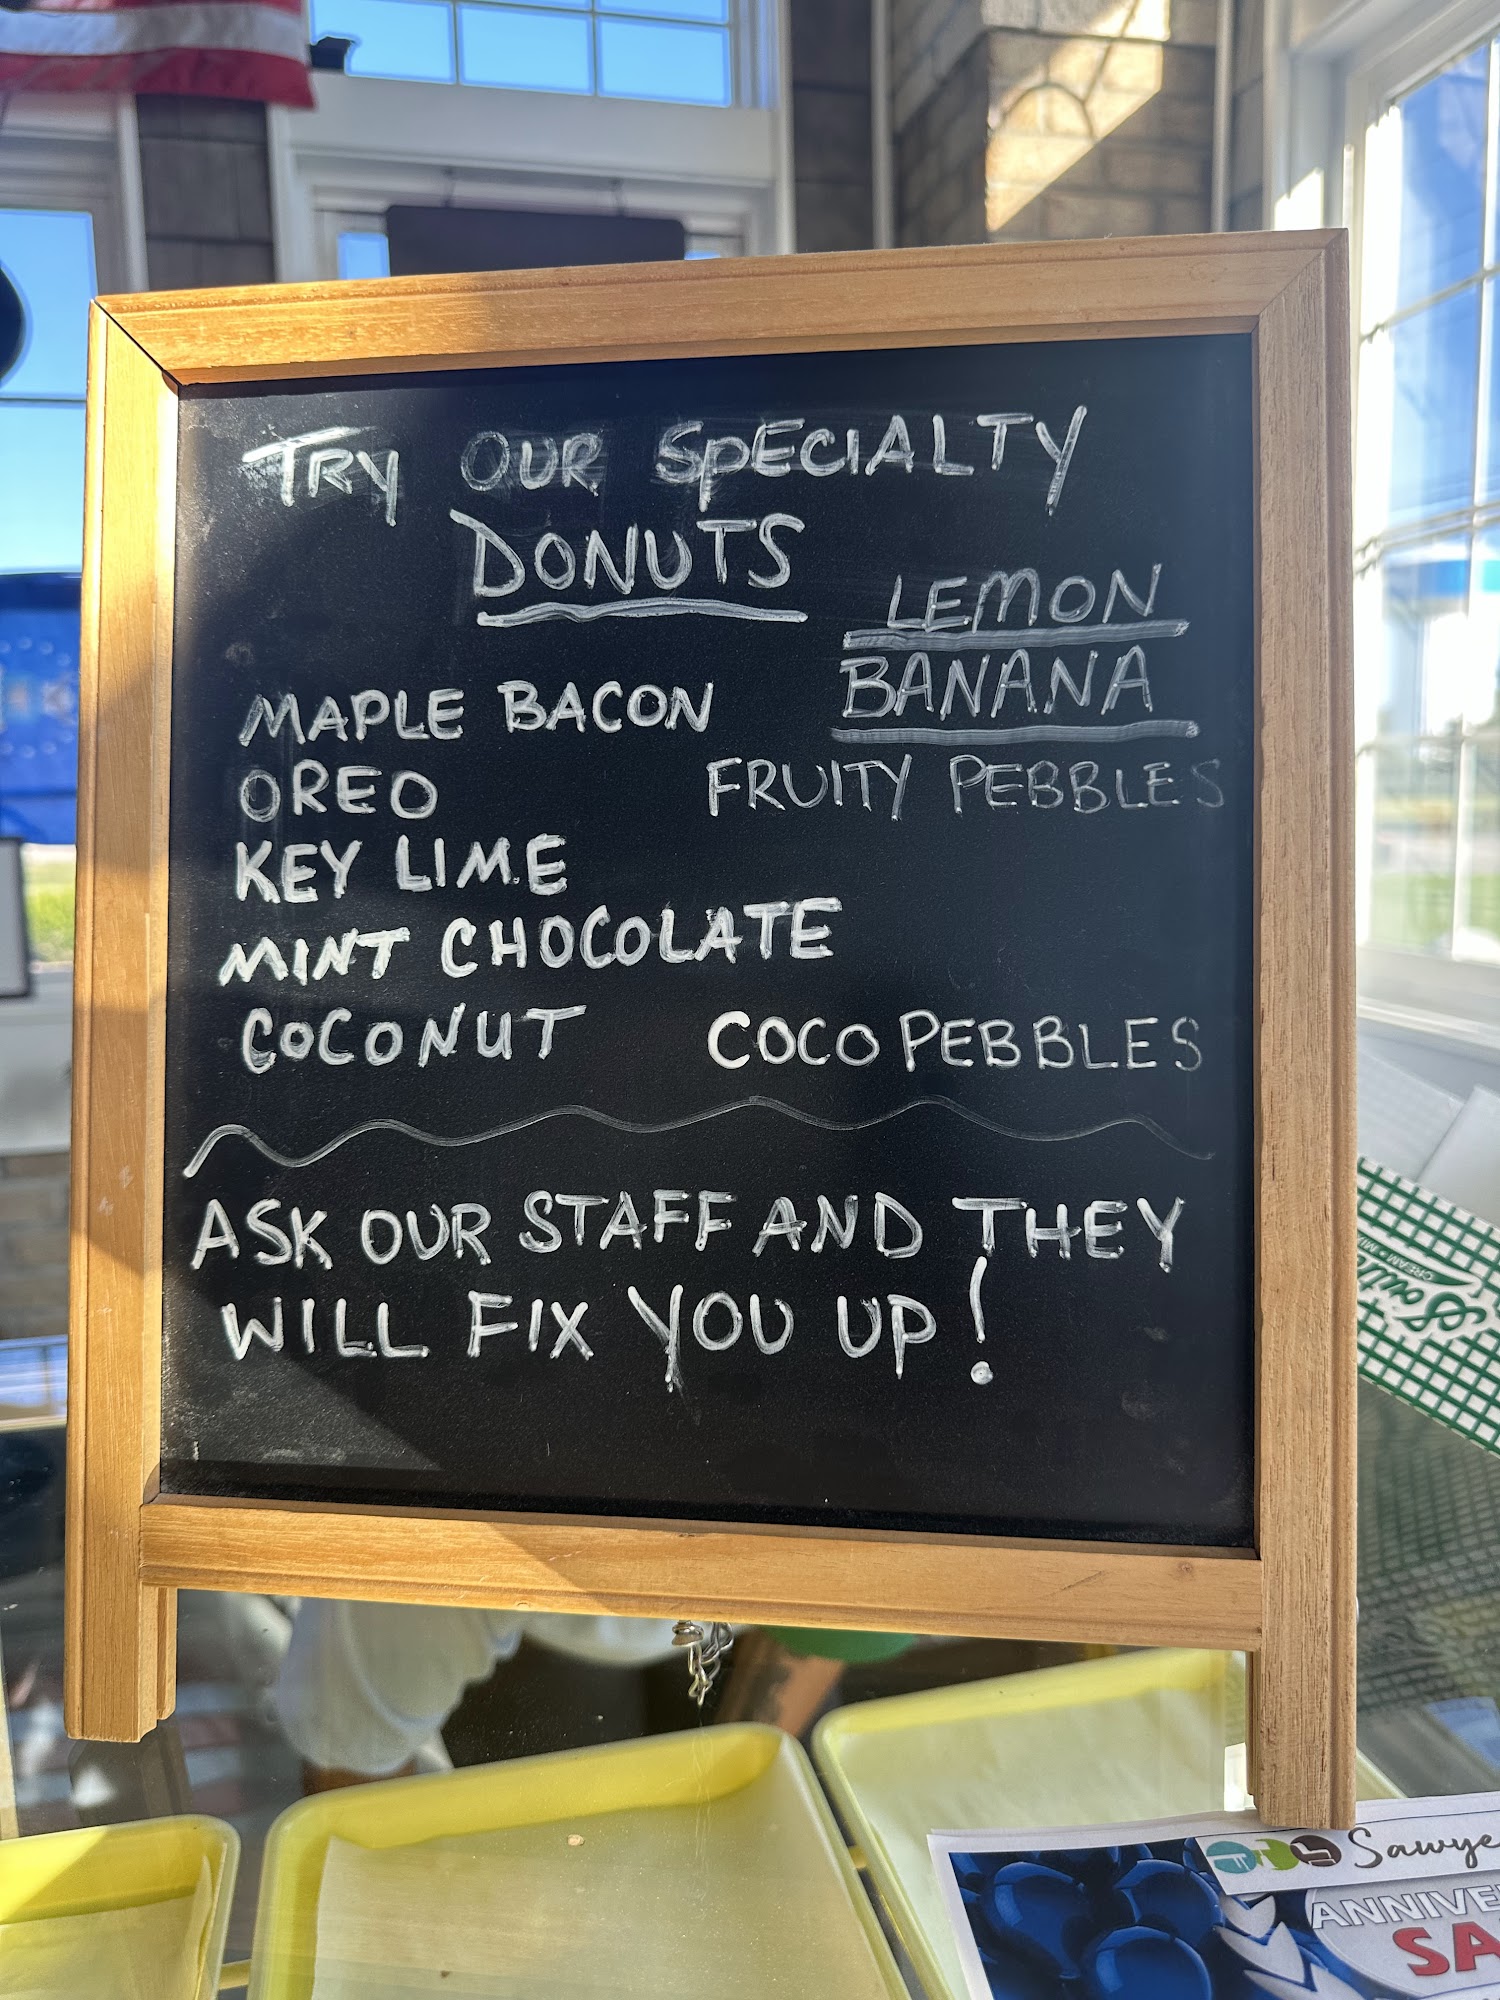 TRY OUR SPECIALTY
DONUTS
LEMON
BANANA
MAPLE BACON
OREO
FRUITY PEBBLES
KEY LIME
MINT CHOCOLATE
COCONUT COCO PEBBLES
ASK OUR STAFF AND THEY
WILL FIX YOU UP!
CREAM • MI
Sawye
ANNIVE
SA